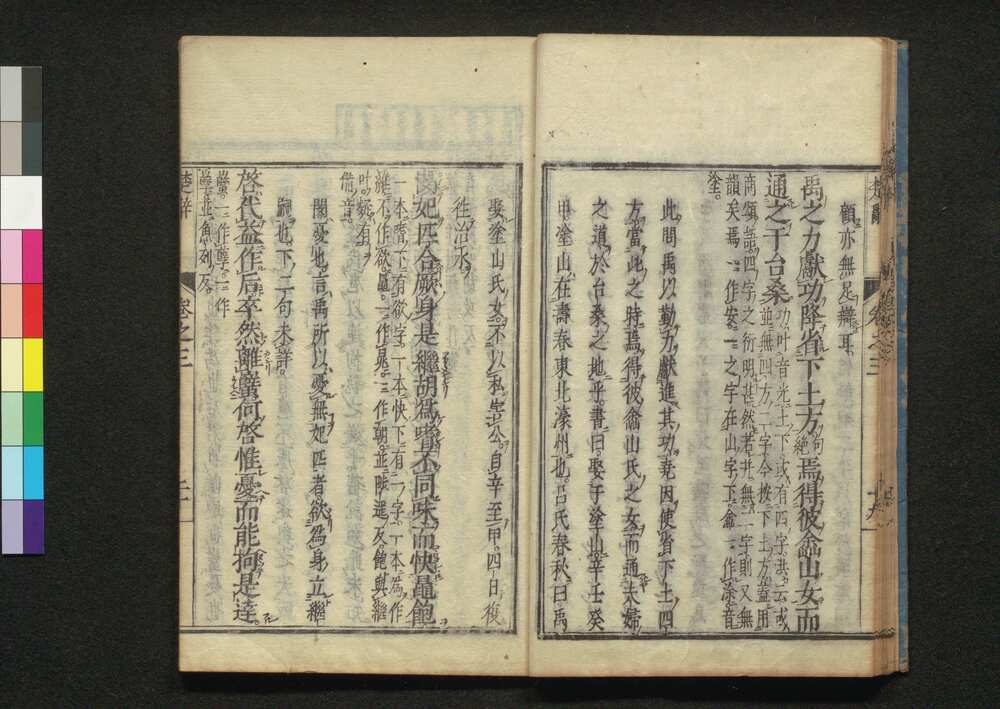 顧亦無足辯耳
禹之力獻功降省下土方句絶焉得彼嵞山女而
通之于台桑功叶音光土下或有四字洪云或
並無四方二字今按下土方蓋用
商頌語四字之衍明甚然若并無二字則又無
韻矣焉一作安一之字在山字下嵞一作涂音
塗
此問禹以勤力獻進其功堯因使省下土四
方當此之時焉得彼嵞山氏之女而通夫婦
之道於台桑之地乎書曰娶于塗山辛壬癸
甲塗山在壽春東北濠州也呂氏春秋曰禹
娶塗山氏女不以私害公自辛至甲四日復
往治水
閔妃匹合厥身是繼胡爲嗜不同味而快鼂飽
一本嗜下有欲字一本快下有一字一本爲作
維不一作欲鼂一作晁一作朝並陟遥反飽與繼
叶疑有
備音
閔憂也言禹所以憂無妃匹者欲爲身立繼
嗣也下二句未詳
啓代益作后卒然離蠥何啓惟憂而能拘是達
蠥一作孽一作
孼並魚列反
楚辭
卷之三